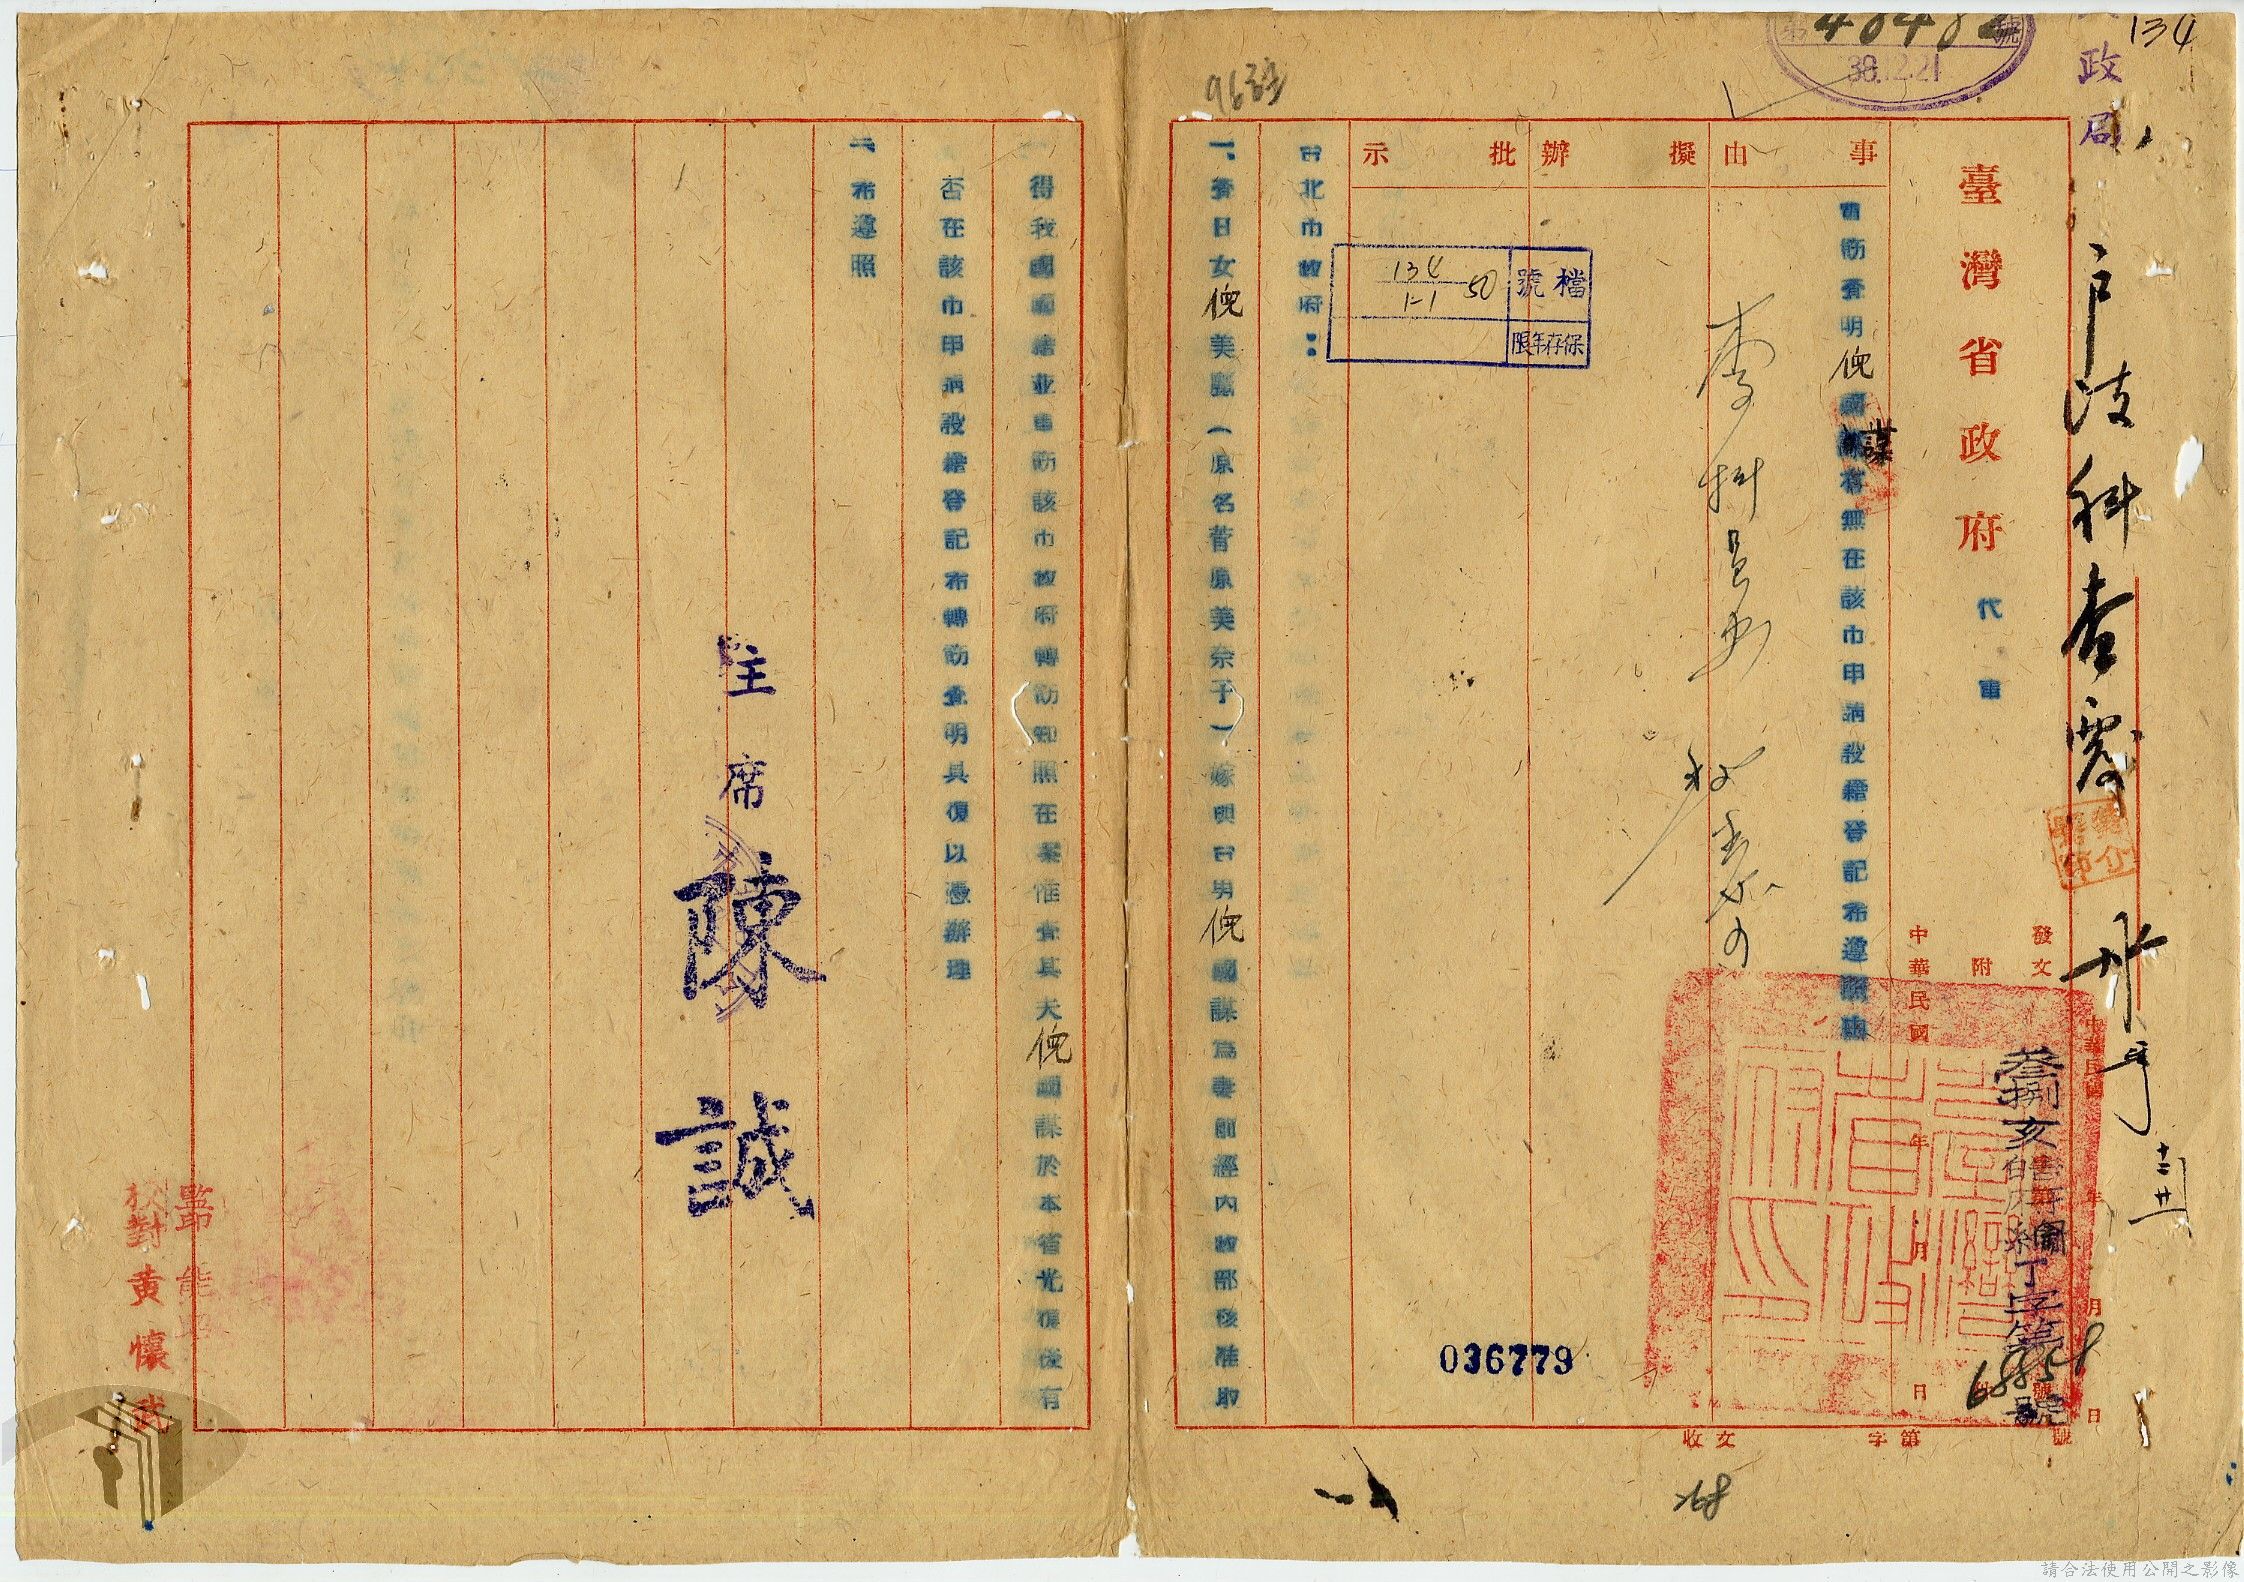 134
政局
第40482號
38.12.21
戶政科查覆
十二廿一
臺灣省政府
代電
發文
附
中華民國 年 月 日
中華民國 年 月 日
叁捌亥 府綱丁字第68858號
事由
擬辦
批示
電飭查明倪國謀有無在該市申請設籍登記希遵照由
謀
檔號
134
1-1
50
保存年限
台北市政府：
一、查日女倪美麗（原名菅原美奈子）嫁與台男倪國謀為妻前經內政部核准取
得我國國籍並電飭該市政府轉飭知照在案惟查其夫倪國謀於本省光復後有
否在該市申請設籍登記希轉飭查明具復以憑辦理
二、希遵照
主席陳誠
監印
校對黃懷武
036779
收文 字第 號
168
請合法使用公開之影像